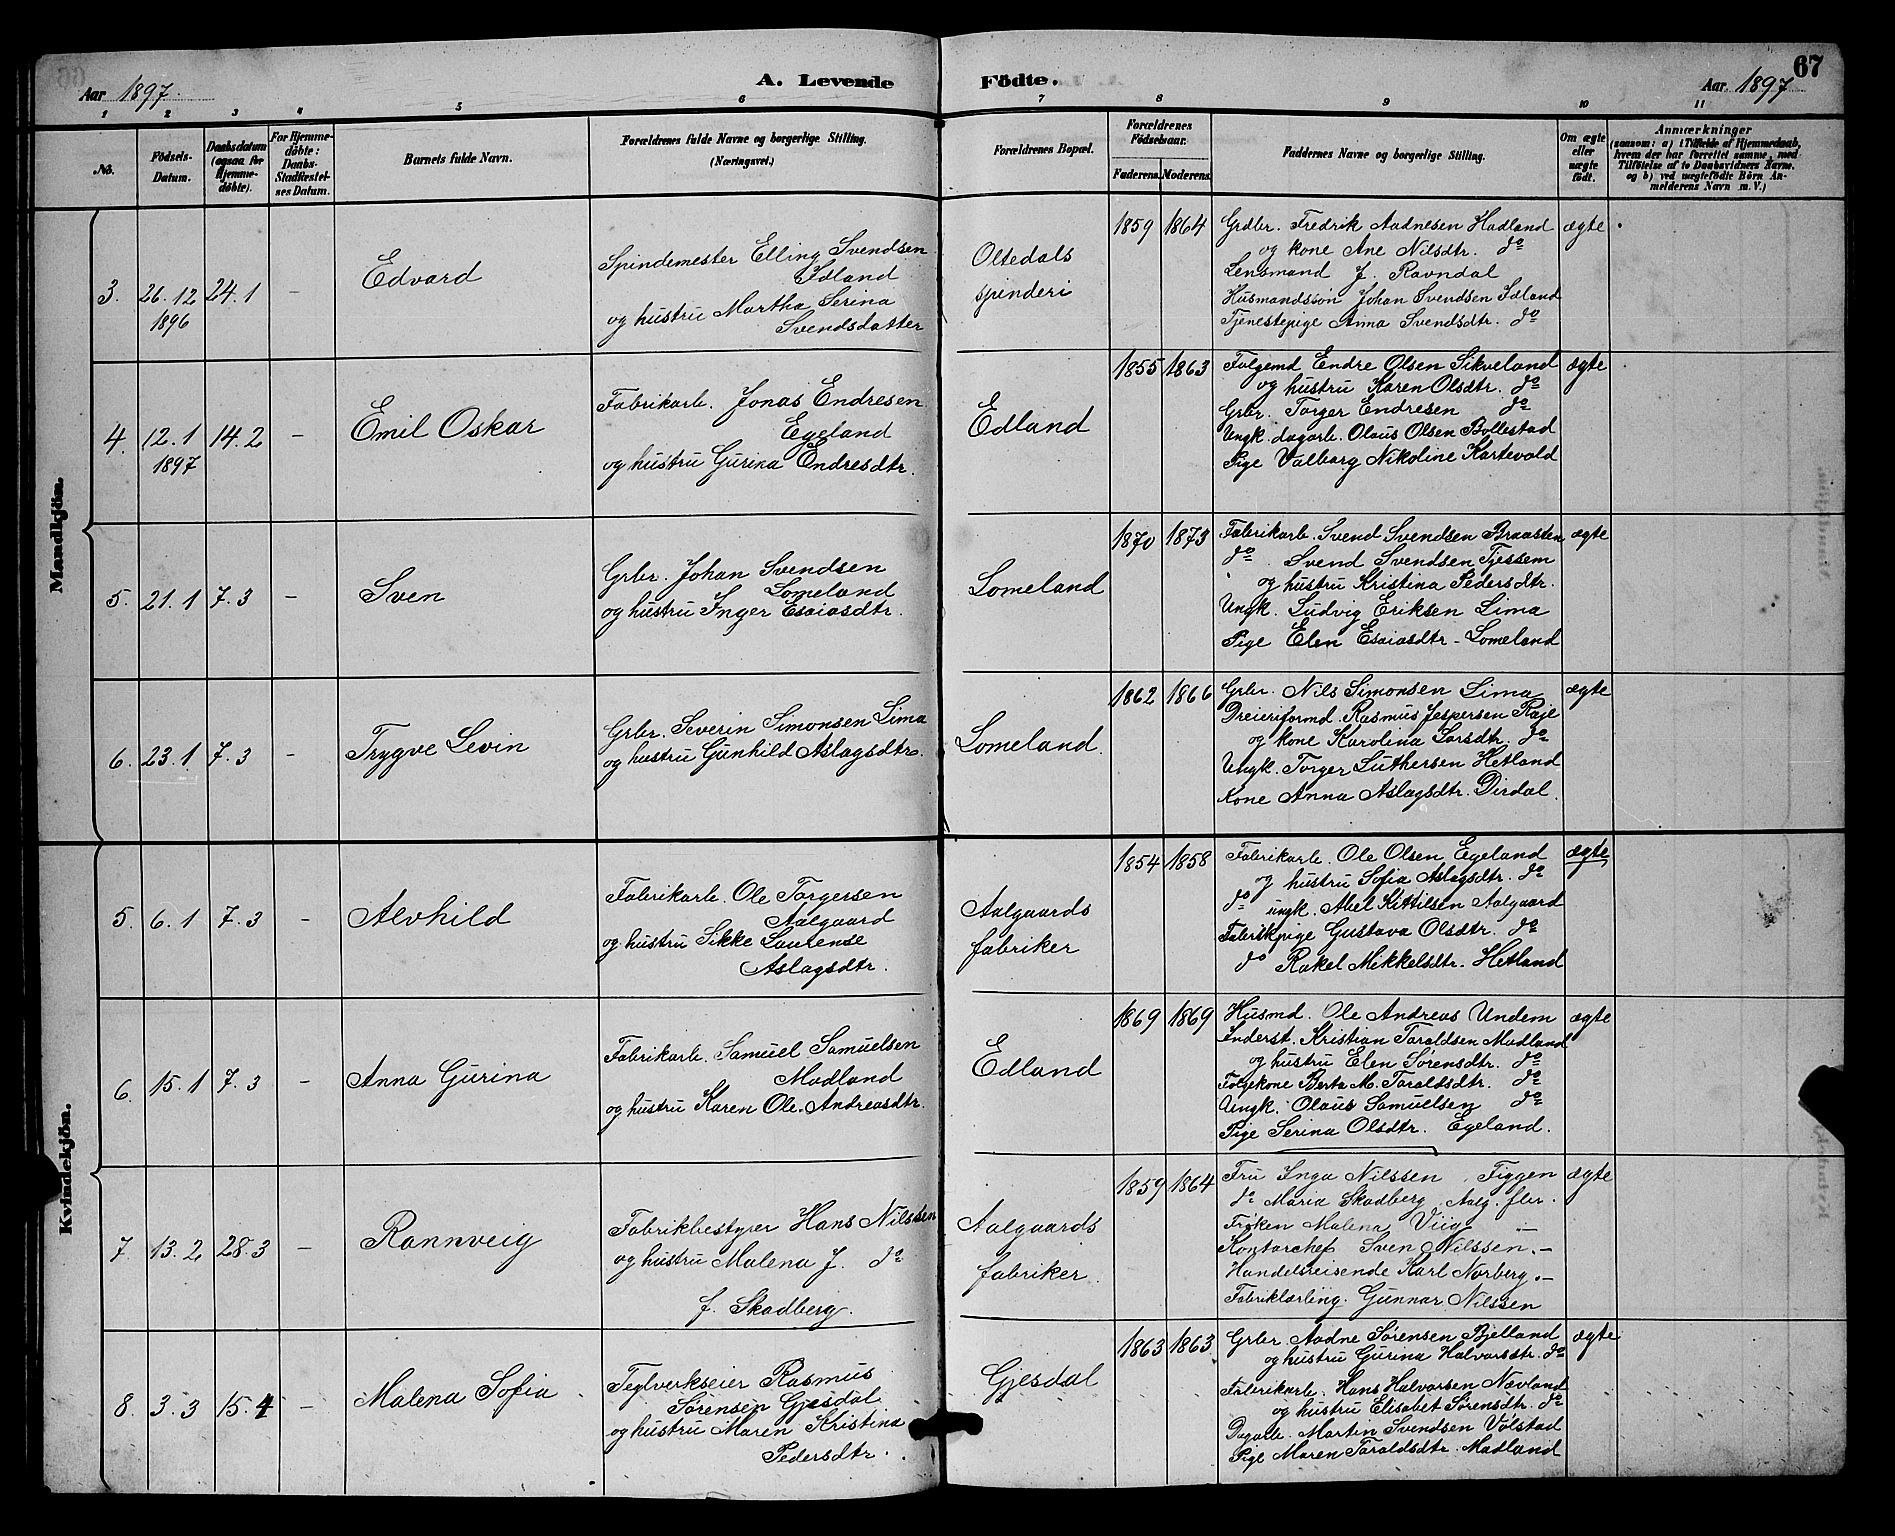 Aar 1897.
A. Levende Födte.
Aar 1897
67
1 2 3 4 5 6 7 8 9 10 11
No.
Födsels-Datum.
Daabsdatum (ogsaa for Hjemme-döbte).
For Hjemme-döbte: Daabs-Stadfæstel-ses Datum.
Barnets fulde Navn.
Forældrenes fulde Navne og borgerlige Stilling. (Næringsvei.)
Forældrenes Bopæl.
Forældrenes Födselsaar.
Faderens. Moderens.
Faddernes Navne og borgerlige Stilling.
Om ægte eller uægte födt.
Anmærkninger
(saasom: a) i Tilfælde af Hjemmedaab, hvem der har forrettet samme, med Tilföielse af to Daabsvidners Navne, og b) ved uægtefödte Börn An-melderens Navn m. V.)
Mandkjön.
3. 26.12 1896 24.1 –
Edvard
Spindemester Elling Svendsen
Idland
og hustru Martha Serina
Svendsdatter
Oltedals
spinderi
1859 1864
Grdbr. Fredrik Aadnesen Hadland
og kone Ane Nilsdtr. do
Lensmand J. Ravndal
Husmandssön Johan Svendsen Idland
Tjenestepige Anna Svendsdtr. do
ægte
4. 12.1 1897 14.2 –
Emil Oskar
Fabrikarb. Jonas Endresen
Egeland
og hustru Gurina Endresdtr.
Edland
1855 1863
Folgemd Endre Olsen Sikveland
og hustru Karen Olsdtr. do
Grbr. Torger Endresen do
Ungk. dagarb. Olaus Olsen Bollestad
Pige Valborg Nikoline Kartevold
ægte
5. 21.1 7.3 –
Sven
Grbr. Johan Svendsen
Lomeland
og hustru Inger Esaiasdtr.
Lomeland
1870 1873
Fabrikarb. Svend Svendsen Braasten
do Svend Svendsen Tjessem
og hustru Kristina Pedersdtr.
Ungk. Ludvig Eriksen Lima
Pige Elen Esaiasdtr – Lomeland
ægte
6. 23.1 7.3 –
Trygve Levin
Grbr. Severin Simonsen Lima
og hustru Gunhild Aslagsdtr.
Lomeland.
1862 1866
Grbr. Nils Simonsen Lima
Dreieriformd. Rasmus Jespersen Raje
og kone Karolina Larsdtr. do
Ungk. Torger Luthersen Hetland
Kone Anna Aslagsdtr. Dirdal.
ægte
Kvindekjön.
5. 6.1 7.3 –
Alvhild
Fabrikarb. Ole Torgersen
Aalgaard
og hustru Sikke Laurense
Aslagsdtr.
Aalgaards
fabriker
1854 1858
Fabrikarb. Ole Olsen Egeland
og hustru Sofia Aslagsdtr. do
do ungk. Abel Kittilsen Aalgaard
Fabrikpige Gustava Olsdtr. do
do Rakel Mikkelsdtr. Hetland
ægte
6. 15.1 7.3 –
Anna Gurina
Fabrikarb. Samuel Samuelsen
Madland
og hustru Karen Ole-Andreasdtr.
Edland
1869 1869
Husmd. Ole Andreas Undem
Inderst. Kristian Taraldsen Madland
og hustru Elen Sörensdtr. do
Folgekone Berta M. Taraldsdtr. do
Ungk. Olaus Samuelsen do
Pige Serina Olsdtr. Egeland.
ægte
7. 13.2 28.3 –
Rannveig
Fabrikbestyrer Hans Nilssen
og hustru Malena J. do
f. Skadberg.
Aalgaards
fabriker.
1859 1864
Fru Inga Nilssen, Figgen
do Maria Skadberg, Aalg. fbr.
Fröken Malena Viig –
Kontorchef Sven Nilssen. –
Handelsreisende Karl Norberg. –
Fabriklærling. Gunnar Nilssen
ægte
8. 3.3 15.4 –
Malena Sofia
Teglverkseier Rasmus
Sörensen Gjesdal
og hustru Maren Kristina
Pedersdtr.
Gjesdal
1863 1863
Grbr. Aadne Sörensen Bjelland
og hustru Gurina Halvorsdtr. do
Fabrikarb. Hans Halvorsen Nævland
og hustru Elisabet Sörensdtr. do
Dagarb. Martin Svendsen Völstad
Pige Maren Taraldsdtr. Madland
ægte